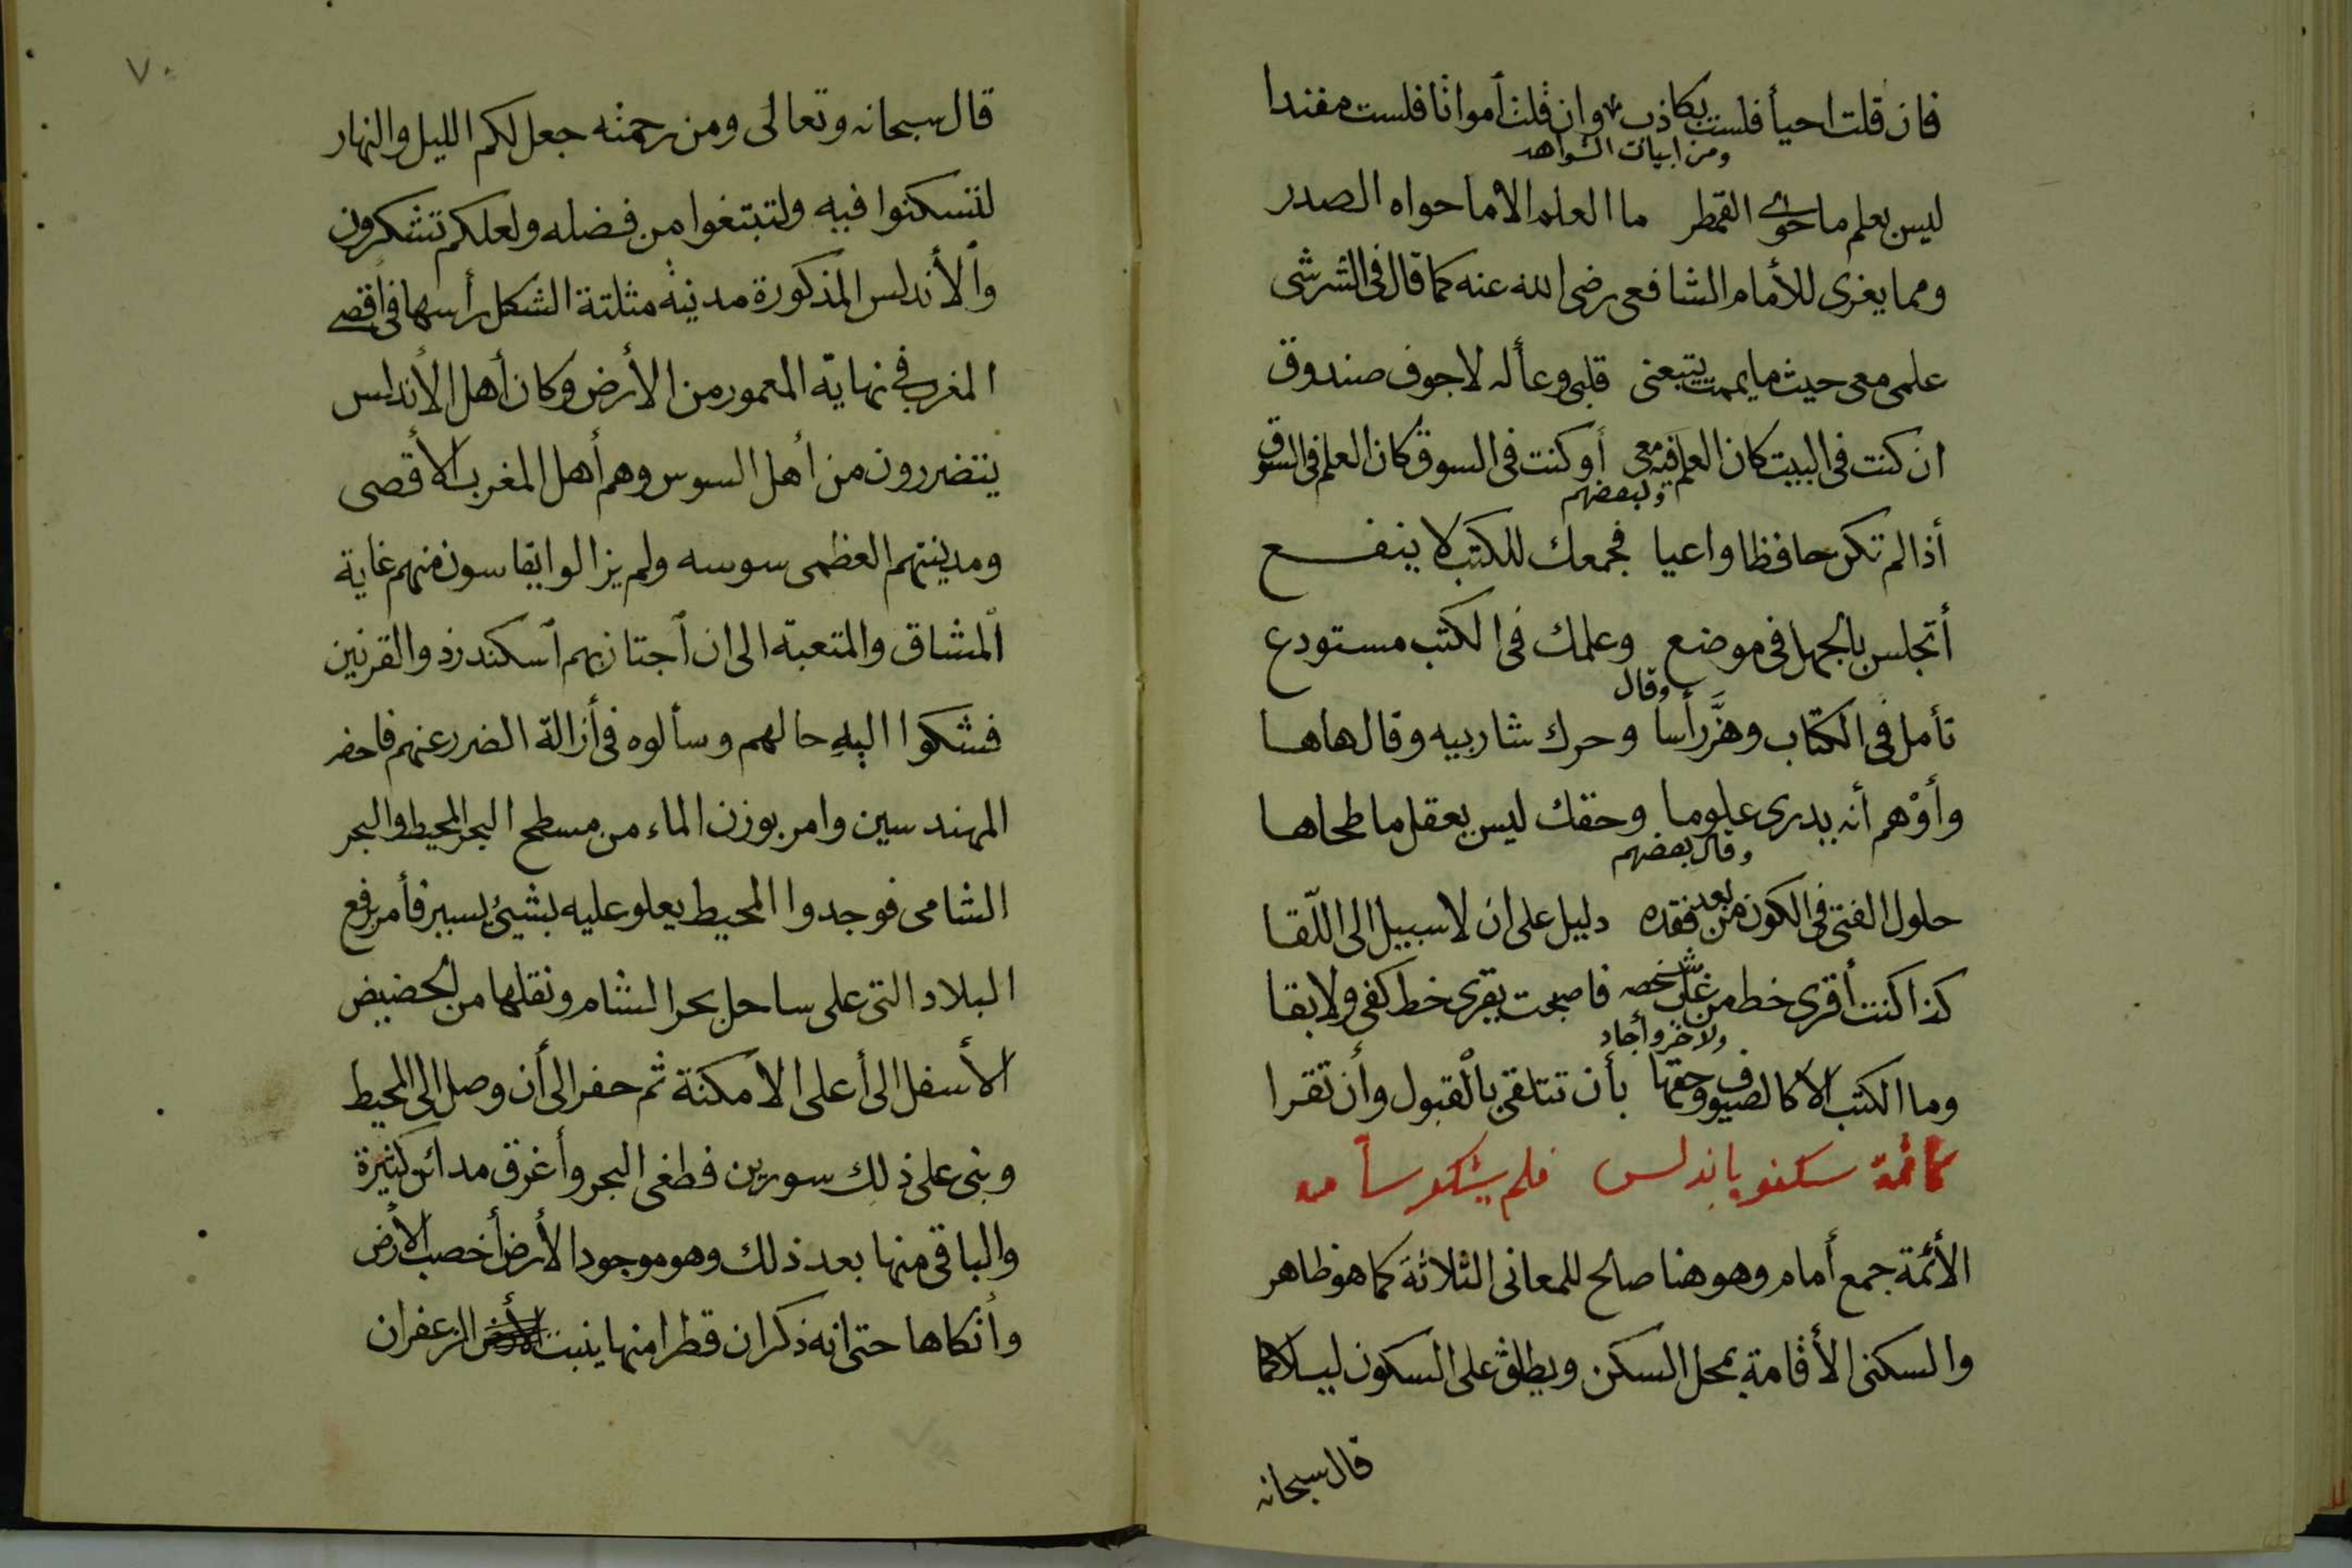 فان قلت احيأ فلست بكاذب وان قلت أمواتا فلست مفندا
ومن ابيات الشواهد
ليس بعلم ما حوى القمطر ما العلم الا ما حواه الصدر
ومما يغرى للأمام الشافعى رضى الله عنه كما قال فى الشرشى
علمى معى حيث ما يممت يتبعنى قلبى وعأله لا جوف صندوق
ان كنت فى البيت كان العلم فيه معى أو كنت فى السوق كان العلم فى السوق
ولبعضهم
أذا لم تكن حافظا واعيا فجمعك للكتب لا ينفع
أتجلس بالجهل فى موضع وعلمك فى الكتب مستودع
وقال
تأمل فى الكتاب وهزَّ رأسا وحرك شاربيه وقال هاها
وأوْهم أنه يدرى علوما وحقك ليس يعقل ما طحاها
وقال بعضهم
حلول الفتى فى الكون من بعد فقده دليل على ان لا سبيل الى اللّقا
كذا كنت أقرى خط من غاب شخصه فاصبحت يقرى خط كفى ولا بقا
ولاخر وأجاد
وما الكتب الا كالضيوف وحقها بأن تتلقى بالقبول وأن تقرا
كائمة سكنو باندلس فلم يشكو سأ مه
الأئمة جمع أمام وهو هنا صالح للمعانى الثلاثة كما هو ظاهر
والسكنى الأقامة بمحل السكن ويطلق على السكون ليلا كما
قال سبحانه
٧٠
قال سبحانه وتعالى ومن رحمته جعل لكم الليل والنهار
لتسكنوا فيه ولتبتغوا من فضله ولعلكم تشكرون
والأندلس المذكورة مدينة مثلتة الشكل رأسها فى اقصى
المغرب فى نهاية المعمور من الأرض وكان أهل الأندلس
يتضررون من أهل السوس وهم أهل المغرب الأقصى
ومدينتهم العظمى سوسه ولم يزالوا يقاسون منهم غاية
المشاق والمتعبة الى ان أجتاز بهم أسكندر ذو القرنين
فشكوا اليه حالهم وسألوه فى أزالة الضرر عنهم فاحضر
المهندسين وامر بوزن الماء من مسطح البحر المحيط والبحر
الشامى فوجدوا المحيط يعلو عليه بشيئ يسير فأمر برفع
البلاد التى على ساحل بحر الشام ونقلها من الحضيض
الأسفل الى أعلى الأمكنة ثم حفر الى أن وصل الى المحيط
وبنى على ذلك سورين فطغى البحر وأغرق مدائن كثيرة
والباقى منها بعد ذلك وهو موجود الأرض أخصب الأرض
وأنكاها حتى انه ذكر ان قطرا منها ينبت الزعفران